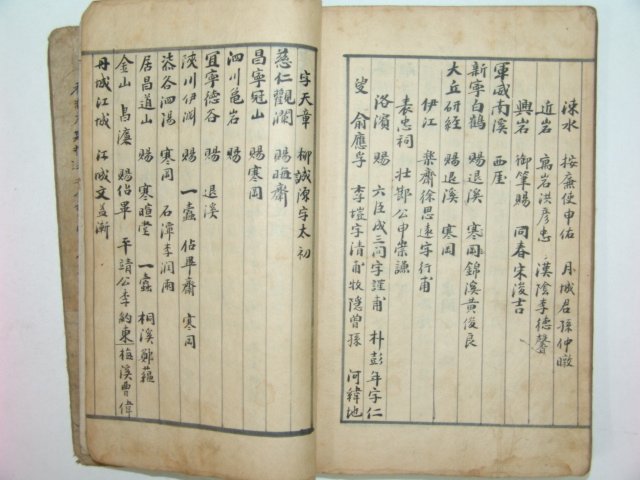 涑水 按廉使申佑 月城君孫仲暾
近岩 寓岩洪彦忠 漢陰李德馨
興岩 御筆賜 同春宋浚吉
軍威南溪 西厓
新寧白鶴 賜退溪 寒岡 錦溪黄俊良
大丘研経 賜退溪 寒岡
伊江 樂齋徐思遠字行甫
表忠祠 壯節公申崇謙
洛濱 賜 六臣成三問字謹甫 朴彭年字仁
叟 俞應孚 李塏字清甫牧隱曾孫 河緯地
字天章 柳誠源字太初
慈仁觀瀾 賜晦齋
昌寧冠山 賜寒岡
泗川龜岩 賜
宜寧德谷 賜 退溪
陜川伊淵 賜 一蠹 佔畢齋 寒岡
柒谷泗陽 寒岡 石潭李潤雨
居昌道山 賜 寒暄堂 一蠹 桐溪鄭蘊
金山 景濂 賜佔畢 平靖公李約東 梅溪曺偉
丹城江城 江城文益漸